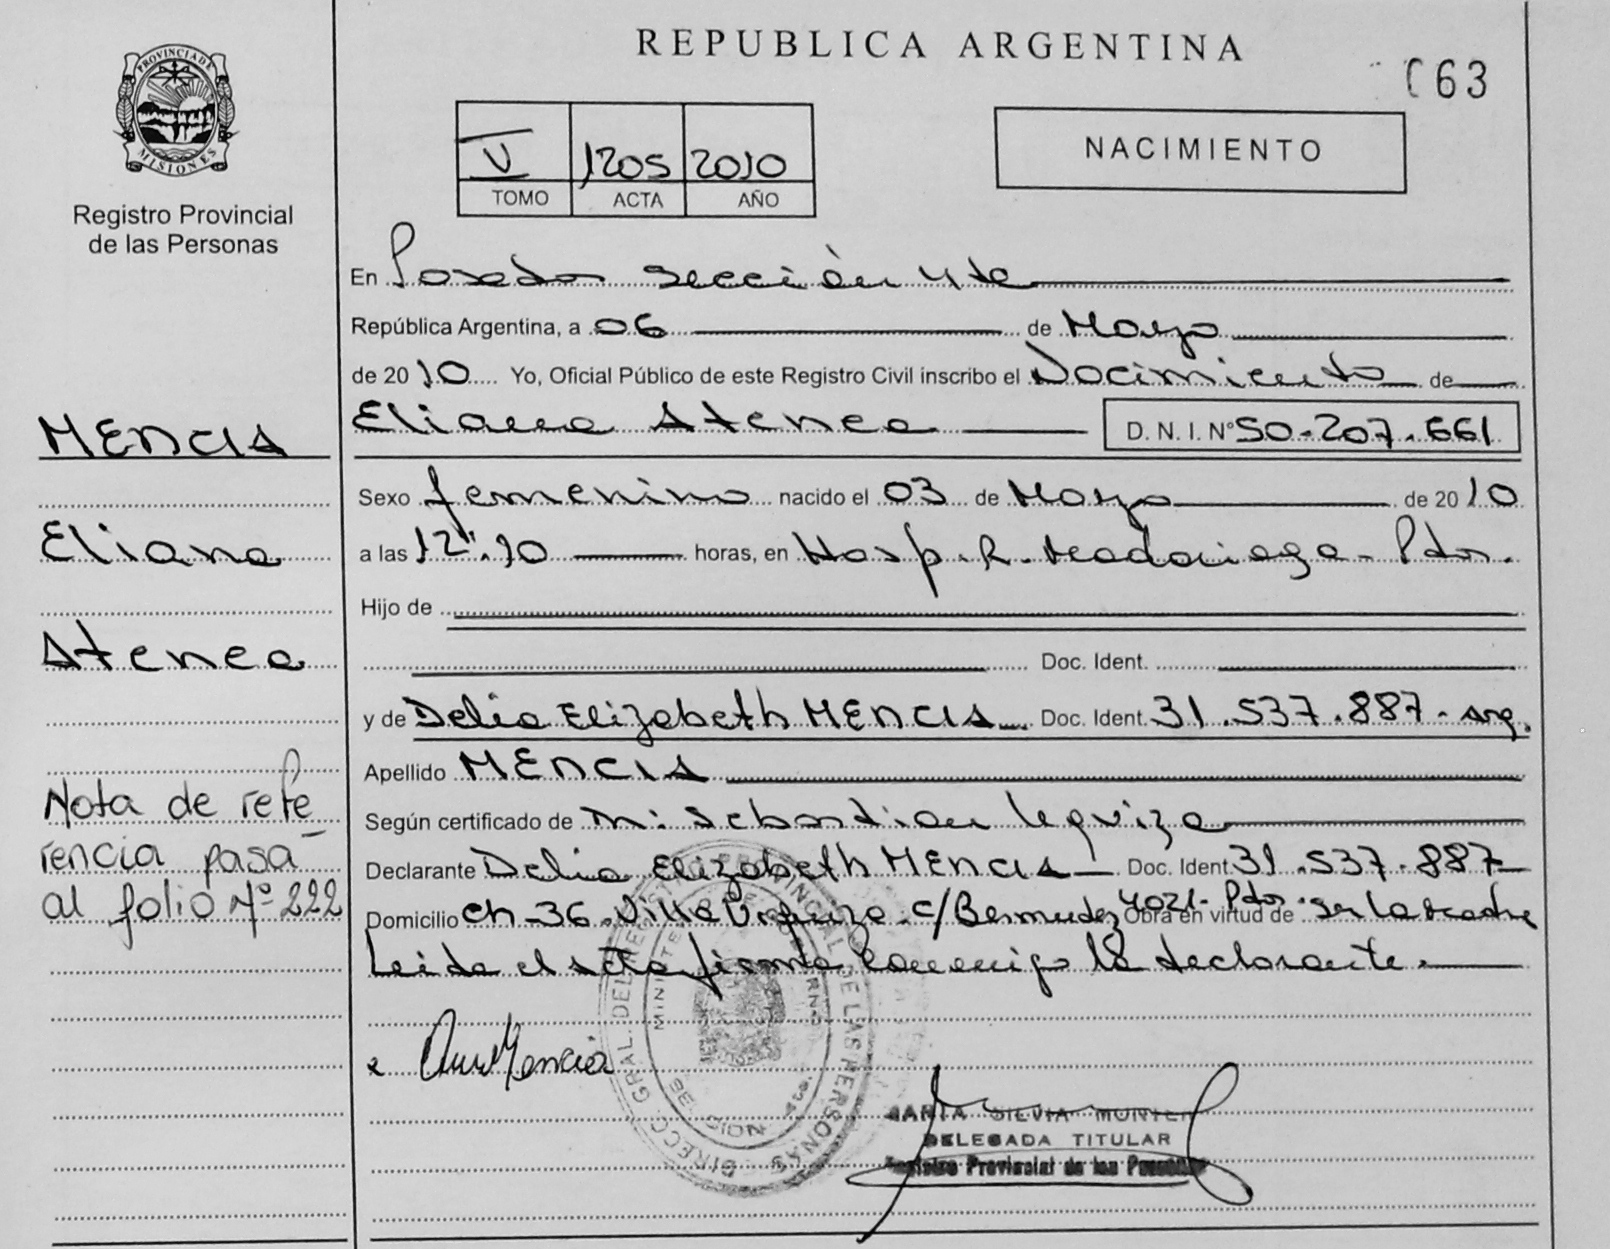 REPUBLICA ARGENTINA
063
PROVINCIA DE
MISIONES
Registro Provincial
de las Personas
V 1205 2010
TOMO ACTA AÑO
NACIMIENTO
En Posadas sección 4ta
República Argentina, a 06 de Mayo
de 2010 Yo, Oficial Público de este Registro Civil inscribo el Nacimiento de
Eliana Atenea D. N. I. Nº 50.207.661
MENCIA
Eliana
Atenea
Sexo femenino nacido el 03 de Mayo de 2010
a las horas, en Hosp. R. Madariaga - Pdas.
Hijo de
Doc. Ident.
y de Delia Elizabeth MENCIA Doc. Ident. 31.537.887 - arg.
Apellido MENCIA
Según certificado de Sebastian
Declarante Delia Elizabeth MENCIA Doc. Ident. 31.537.887
Domicilio Ch-36 Villa Urquiza - C/Bermudez 4021 - Pdas. Obra en virtud de ser la madre
Leida el acta firma conmigo la declarante.
Nota de refe
rencia pasa
al folio Nº 222
Mencia
DIRECC. GRAL. DEL REGISTRO PROVINCIAL DE LAS PERSONAS
SILVIA
DELEGADA TITULAR
Registro Provincial de las Personas